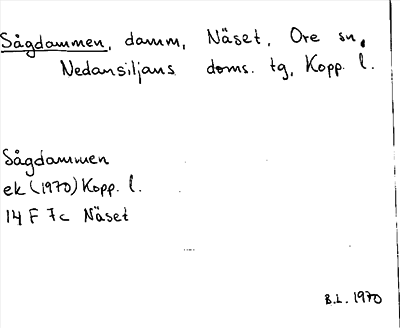 Sågdammen, damm, Näset, Ore sn,
Nedansiljans doms. tg, Kopp. l.
Sågdammen
ek (1970) Kopp. l.
14 F 7c Näset
B.L. 1970